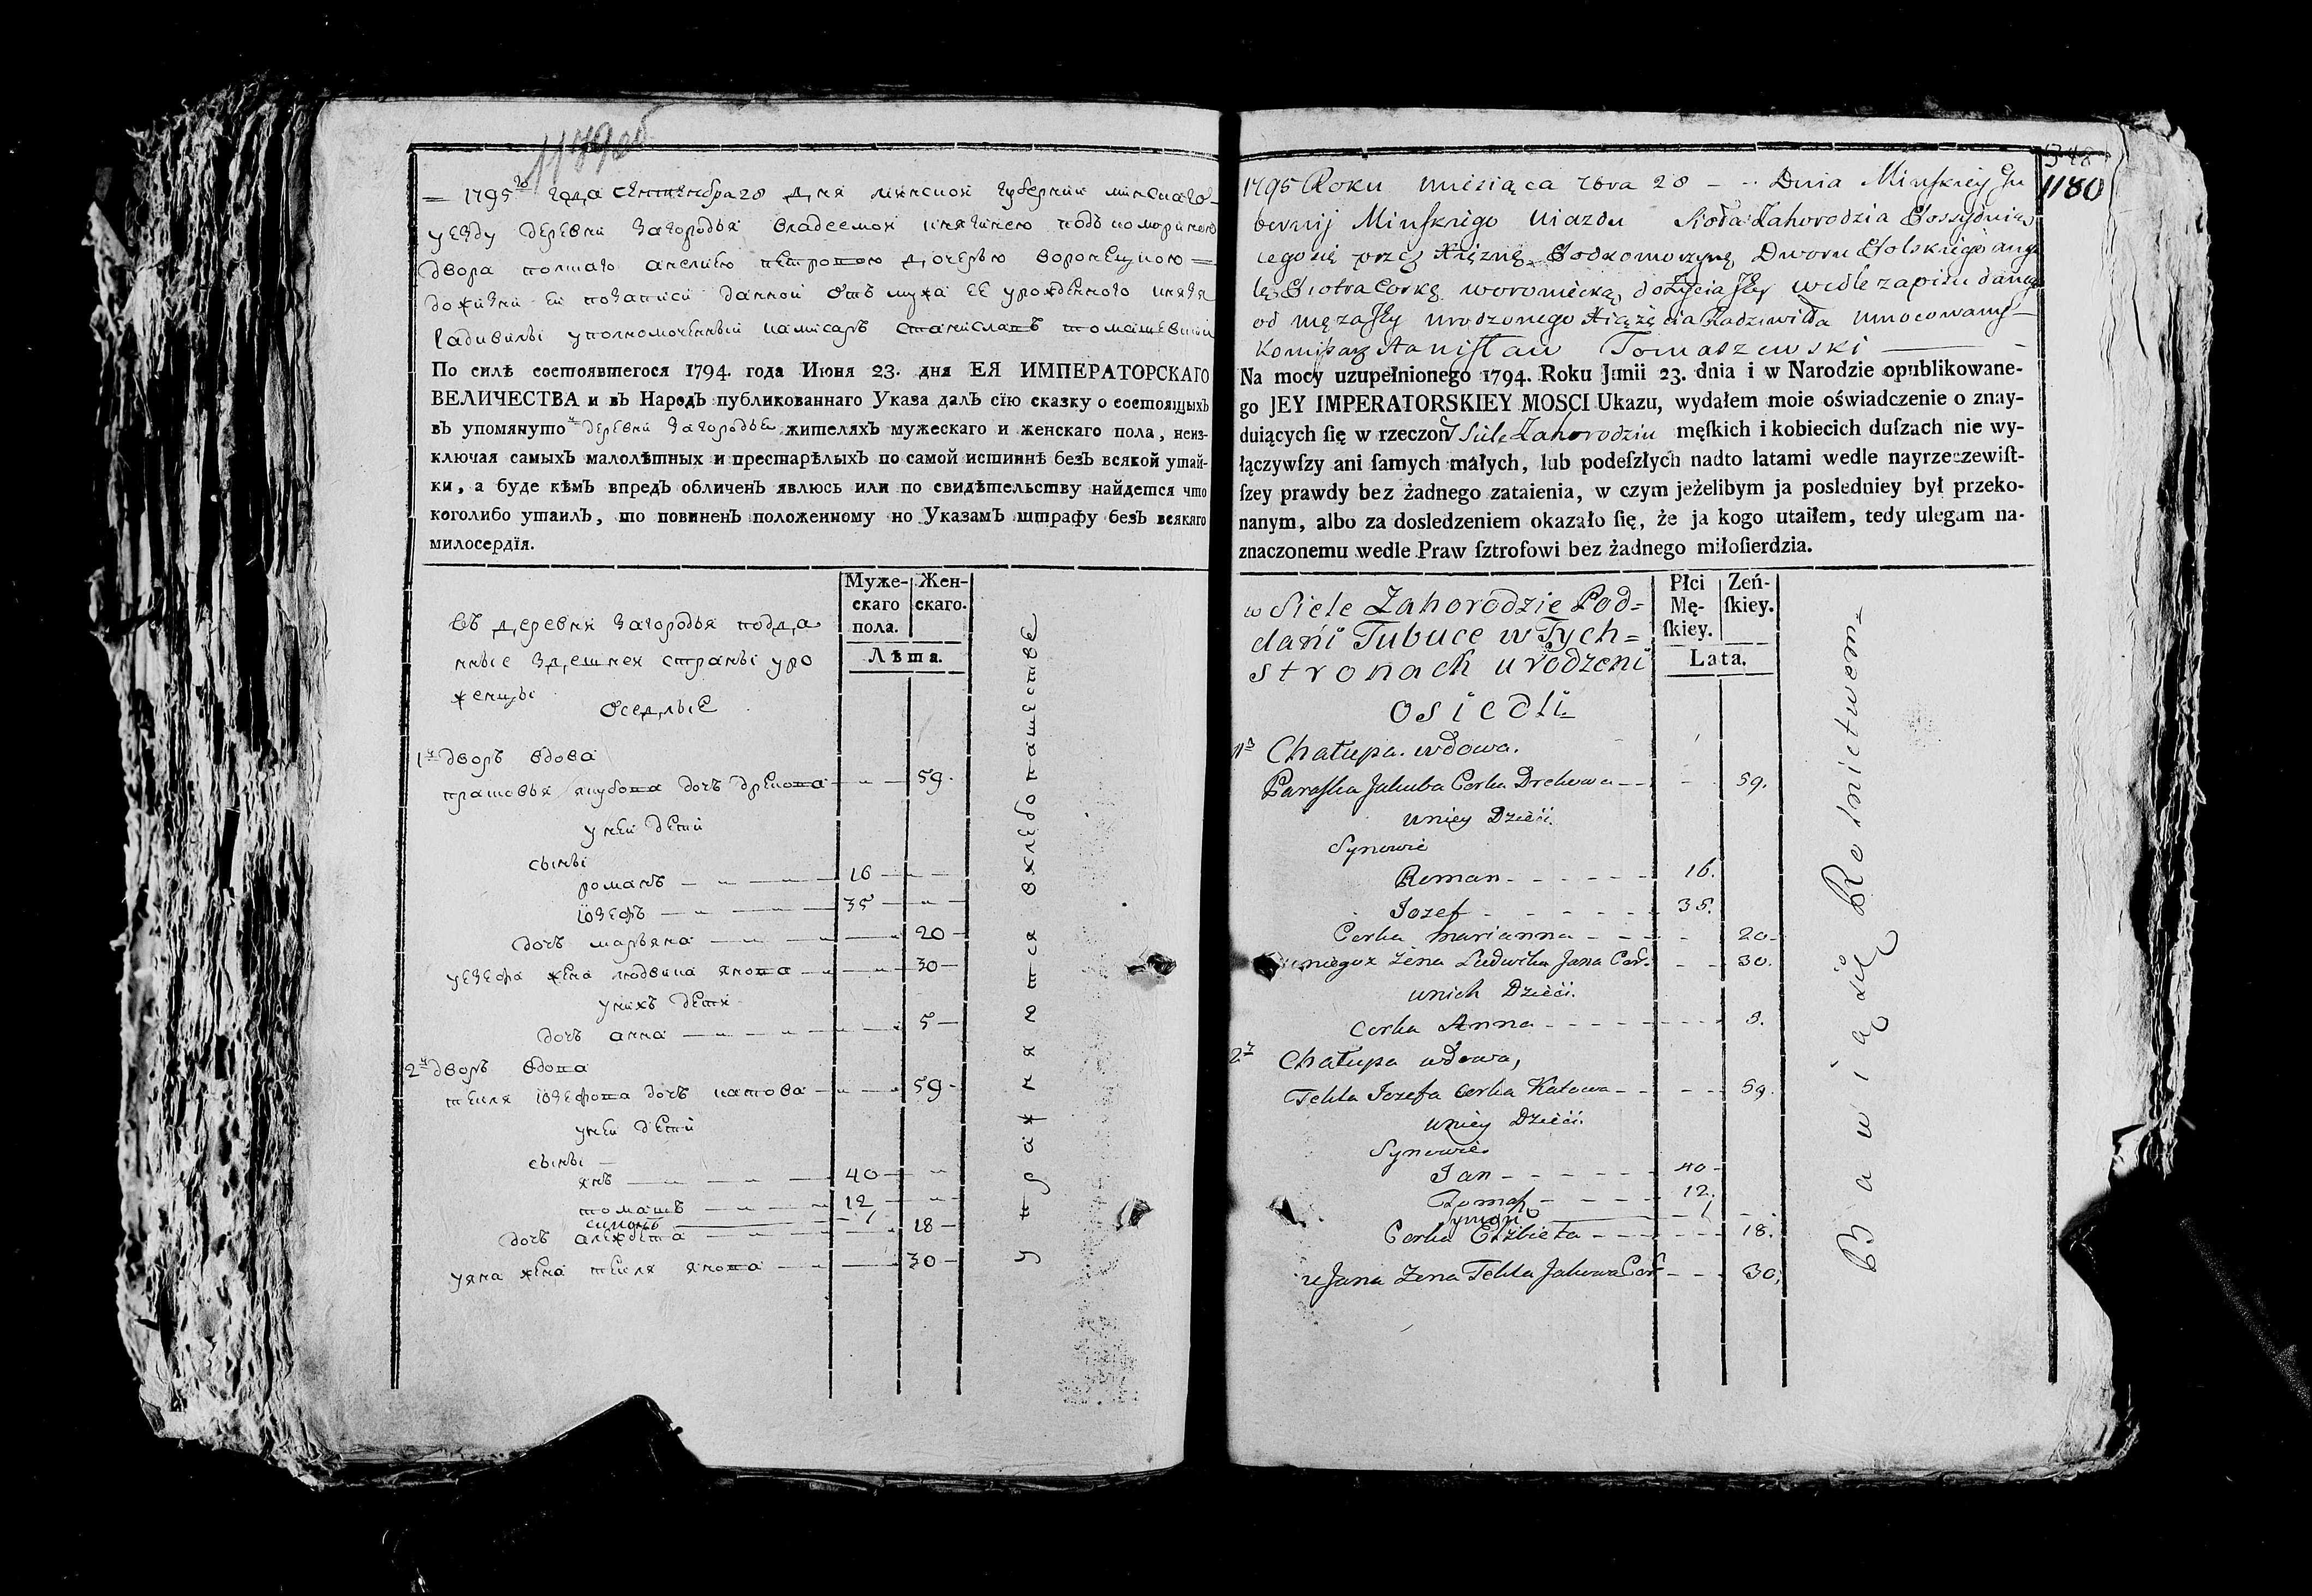 1179об
1795го года сентембра 28 дня минской губернии минскаго
уезду деревни Загородья владеемой княгинею подкоморинею
двора полшаго анелию петровою дочерью воронецкою
дожизни ей позаписи данной отъ мужа ее урожденного князя
Радивилы уполномоченный камисаръ станиславъ томашевский
По силѣ состоявшегося 1794. года Июня 23. дня ЕЯ ИМПЕРАТОРСКАГО
ВЕЛИЧЕСТВА и въ Народъ публикованнаго Указа далъ сїю сказку о состоящыхъ
въ упомянутой деревни Загородьи жителяхъ мужескаго и женскаго пола, неиз-
ключая самыхъ малолѣтныхъ и престарѣлыхъ по самой истиннѣ безъ всякой утай-
ки, а буде кѣмъ впредъ обличенъ явлюсь или по свидѣтельству найдется что
коголибо утаилъ, то повиненъ положенному но Указамъ штрафу безъ всякаго
милосердїя.
Муже-скаго пола. Жен-скаго.
Лѣта.
Въ деревни Загородья подда
нные здешнея страны уро
женцы
Оседлые
1й дворъ вдова
прасовья якубова дочъ дрекова 59
у ней дети
сыны
романъ 16
іозефъ 35
дочъ марьяна 20
уезефа жена людвика янова 30
у нихъ дети
дочъ анна 5
2й дворъ вдова
текля іозефова дочъ катова 59
у ней дети
сыны
янъ 40
томашъ 12
симонъ 1
дочъ алжбета 18
уяна жена текля якова 30
упражняются вхлебопашестве
348
1180
1795 Roku miesiąca 7bra 28 Dnia Minskiey Gu
bernij Minskiego Uiazdu Sioła Zahorodzia Possyduią
cego się przez Xiężnę Podkomorzynę Dworu Polskiego anye
lę Piotra Corkę woroniecką dożycia Jey wedle zapisu danego
od męża Jey urodzonego Xiążęcia Radziwiłła umocowany
Komisarz Stanisław Tomaszewski
Na mocy uzupełnionego 1794. Roku Junii 23. dnia i w Narodzie opublikowane-
go JEY IMPERATORSKIEY MOSCI Ukazu, wydałem moie oświadczenie o znay-
duiących ſię w rzeczoń Siele Zahorodziu męſkich i kobiecich duſzach nie wy-
łączywſzy ani ſamych małych, lub podeſzłych nadto latami wedle nayrzeczewiſt-
ſzey prawdy bez żadnego zataienia, w czym jeżelibym ja posledniey był przeko-
nanym, albo za dosledzeniem okazało ſię, że ja kogo utaiłem, tedy ulegam na-
znaczonemu wedle Praw ſztrofowi bez żadnego miłoſierdzia.
Płci Mę-ſkiey. Zeń-ſkiey.
Lata.
w Siele Zahorodzie Pod=
dańi Tubuce w Tych=
stronach urodzeni
osiedli
1a Chałupa. wdowa.
Paraska Jakuba Corka Drekowa 59.
u niey Dzieci.
Synowie
Roman 16.
Jozef 35.
Corka marianna 20
u niegoz Zena Ludwika Jana Cor: 30.
u nich Dzieci.
Corka Anna 5.
2a Chałupa wdowa,
Tekla Jozefa Corka Katowa 59.
u niey Dzieci.
Synowie
Jan 40
Tomasz 12.
Symon 1
Corka Elżbieta 18.
u Jana Zena Tekla Jakowa Cor 30.
Bawią się Rolnictwem